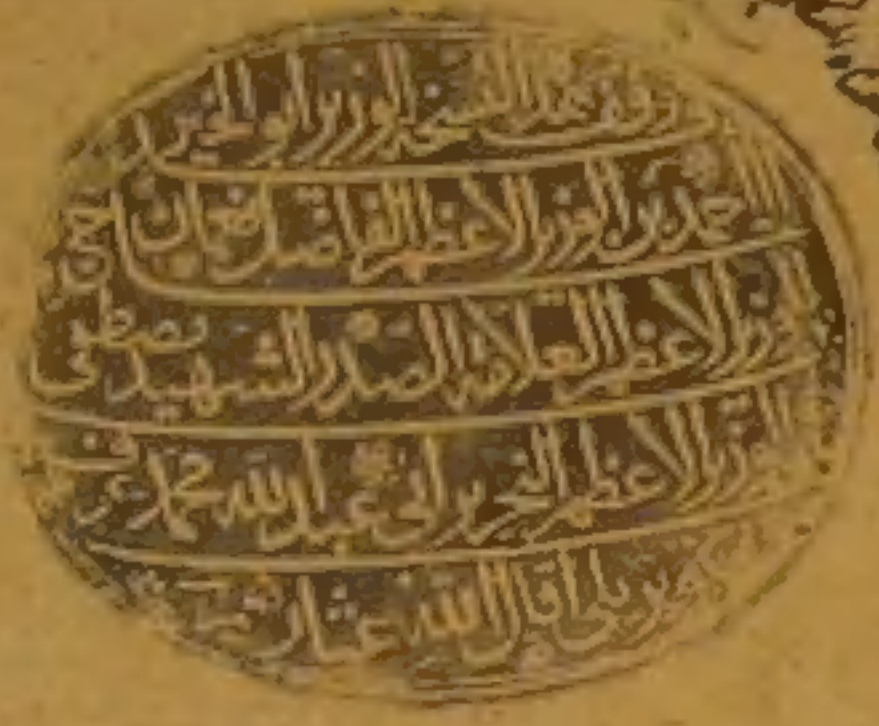 وقف هذه النسخة الوزير أبو الخير
أحمد بن الوزير الأعظم الفاضل نعمان بن
الوزير الأعظم العلامة الصدر الشهيد مصطفى
الوزير الأعظم النحرير أبي عبد الله محمد عرف
بكوبريلي أقال الله عثارهم